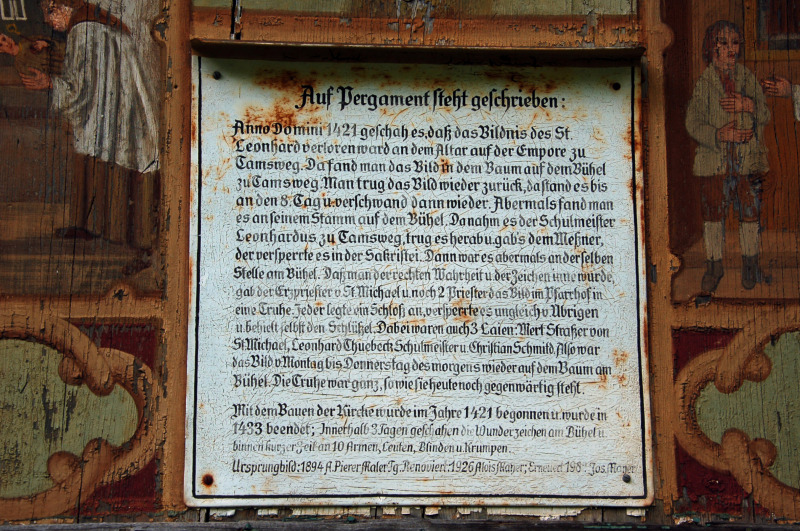 Auf Pergament steht geschrieben:
Anno Domini 1421 geschah es, daß das Bildnis des St.
Leonhard verloren ward an dem Altar auf der Empore zu
Tamsweg. Da fand man das Bild in dem Baum auf dem Bühel
zu Tamsweg. Man trug das Bild wieder zurück, da stand es bis
an den 8. Tag u. verschwand dann wieder. Abermals fand man
es an seinem Stamm auf dem Bühel. Da nahm es der Schulmeister
Leonhardus zu Tamsweg, trug es herab u. gab's dem Meßner,
der versperrte es in der Sakristei. Dann war es abermals an der selben
Stelle am Bühel. Daß man der rechten Wahrheit u. der Zeichen inne würde,
gab der Erzpriester v. St. Michael u. noch 2 Priester das Bild im Pfarrhof in
eine Truhe. Jeder legte ein Schloß an, versperrte es ungleich v. Übrigen
u. behielt selbst den Schlüßel. Dabei waren auch 3 Laien: Mert Straßer von
St. Michael, Leonhard Thuebeck Schulmeister u. Christian Schmild. Also war
das Bild v. Montag bis Donnerstag des morgens wieder auf dem Baum am
Bühel. Die Truhe war ganz, so wie sie heute noch gegenwärtig steht.
Mit dem Bauen der Kirche wurde im Jahre 1421 begonnen u. wurde in
1433 beendet; Innerhalb 3 Tagen geschahen die Wunderzeichen am Bühel u.
binnen kurzer Zeit an 10 Armen, Leuten, Blinden u. Krumpen.
Ursprungbild: 1894 A. Pierer Maler Tg. Renoviert: 1926 Alois Mayer; Erneuert 198 Jos. Mayer